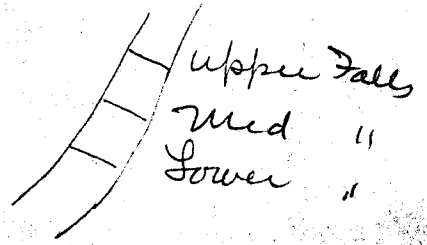 Upper Falls
Med "
Lower "